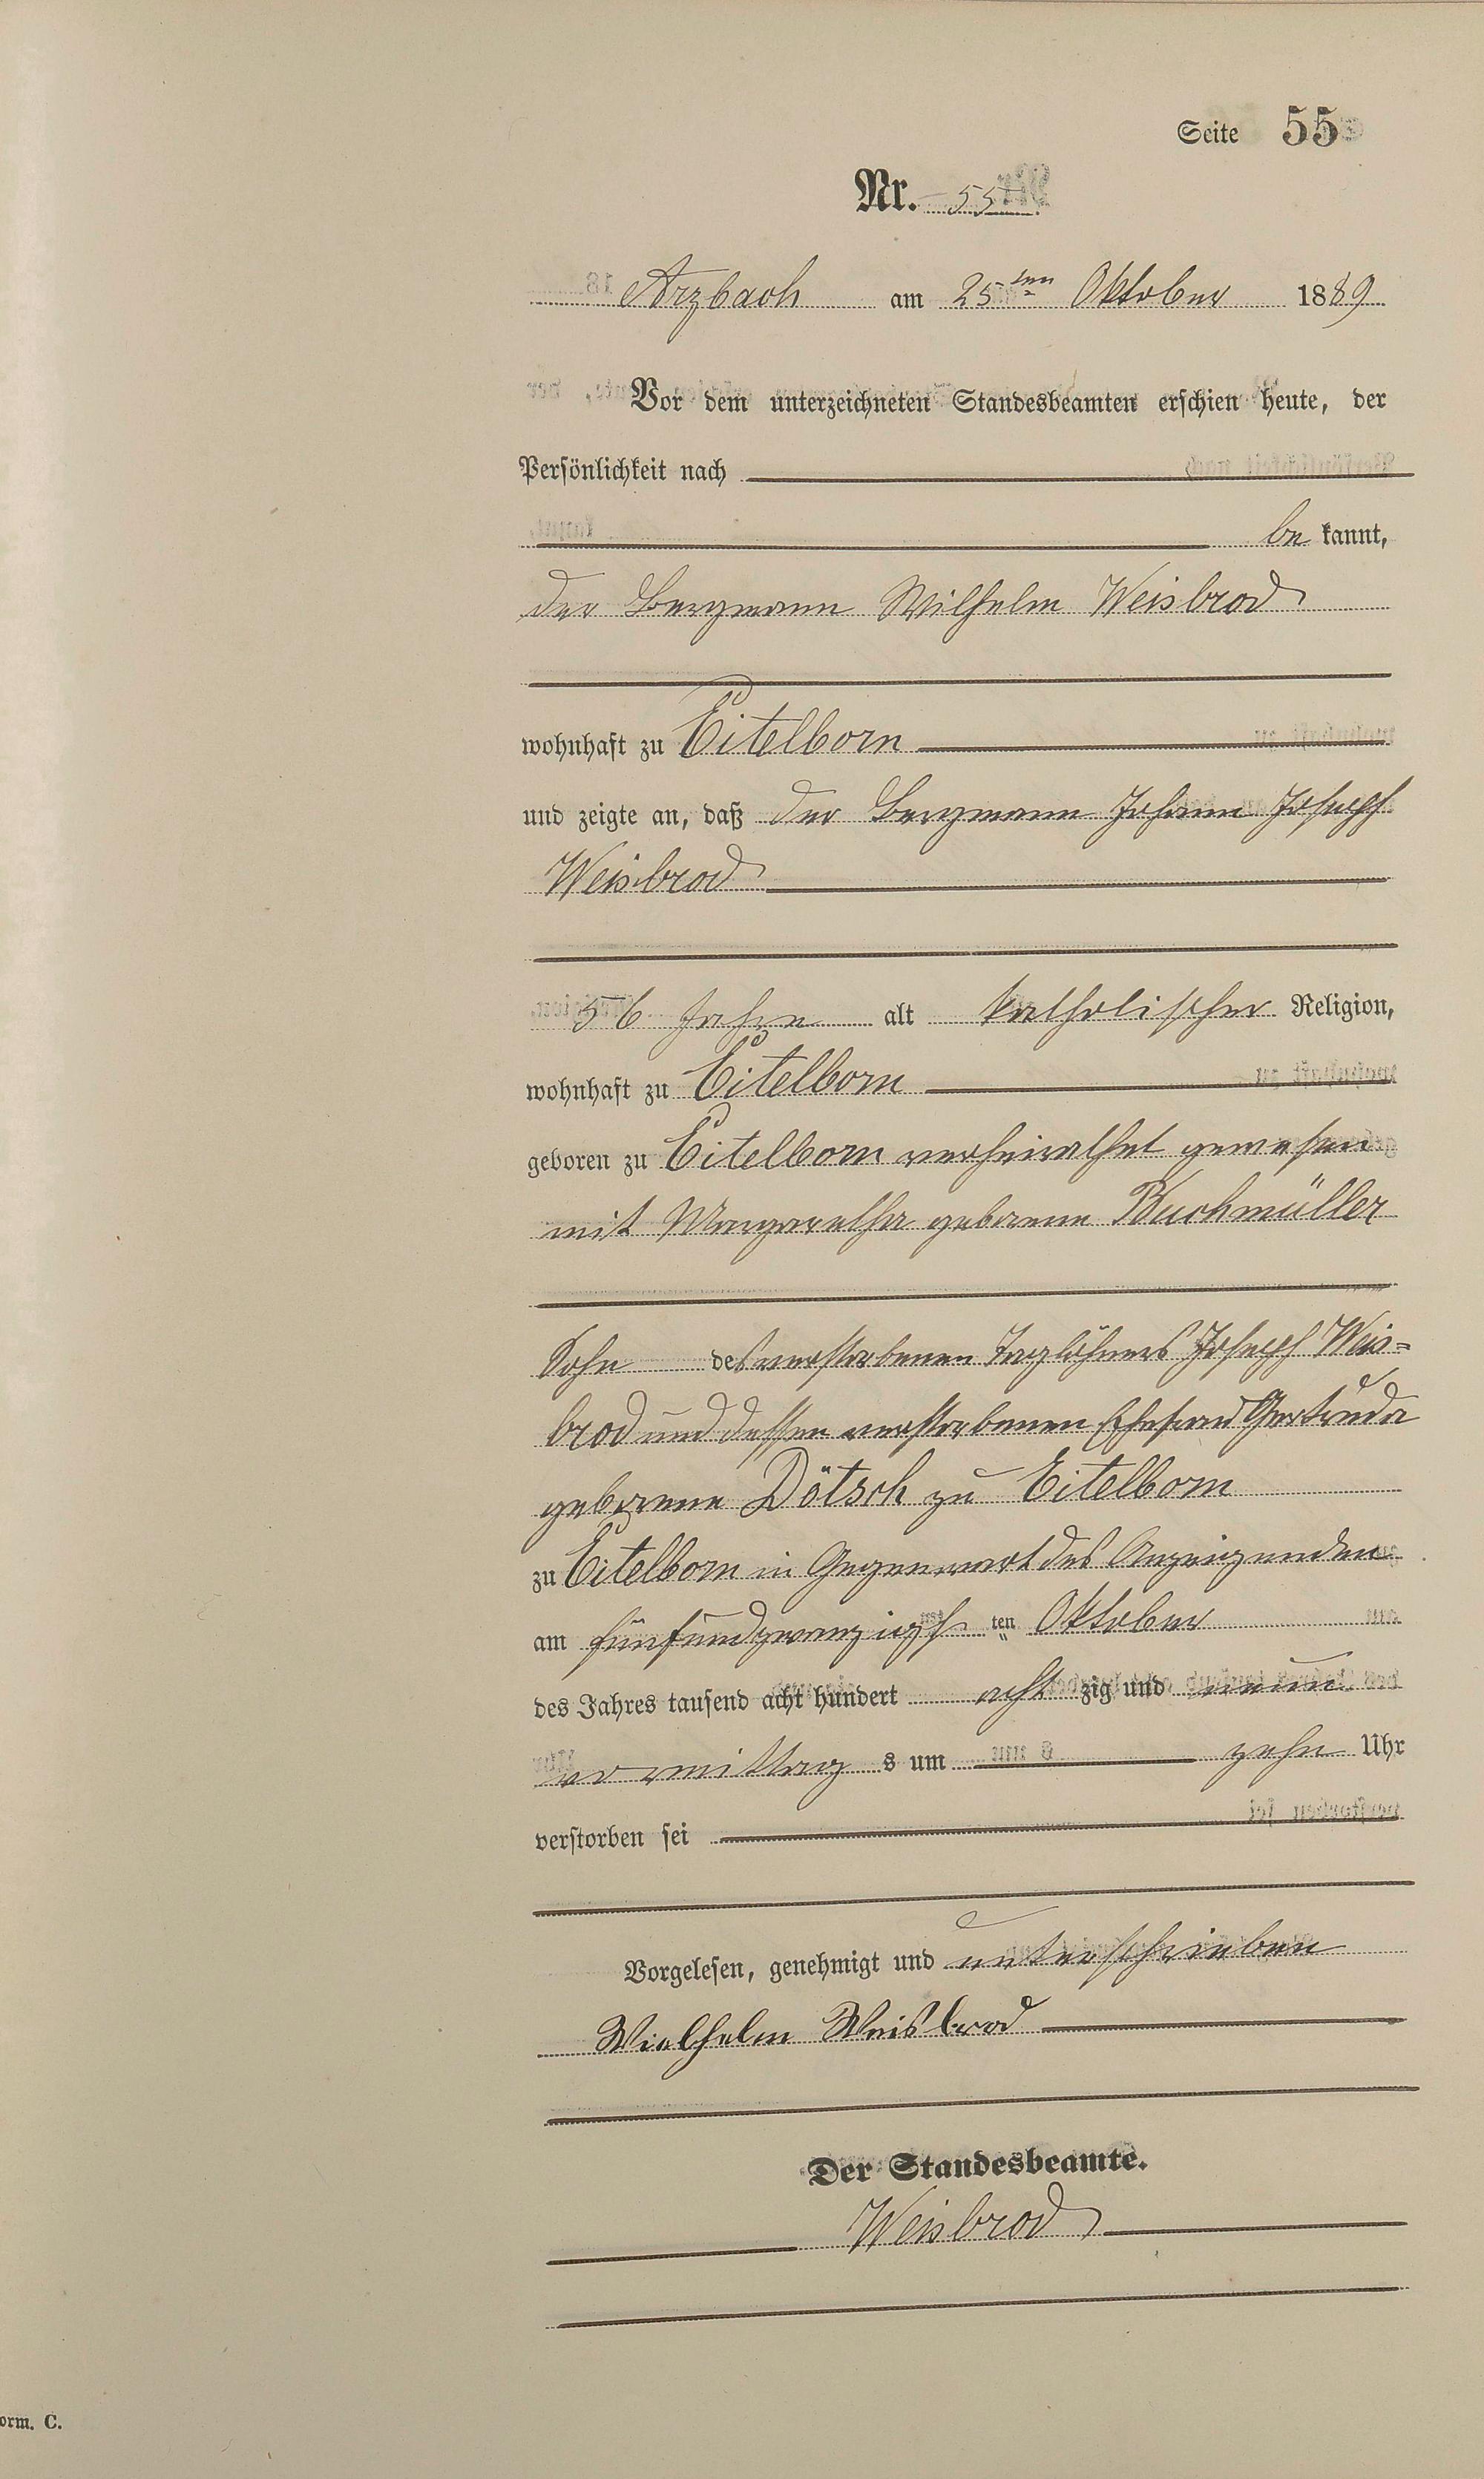 Seite 55
Nr. 55
Arzbach am 25ten Oktober 1889
Vor dem unterzeichneten Standesbeamten erschien heute, der
Persönlichkeit nach
be kannt,
der Bergmann Wilhelm Weisbrod
wohnhaft zu Eitelborn
und zeigte an, daß der Bergmann Johann Joseph
Weisbrod
56 Jahre alt katholischer Religion,
wohnhaft zu Eitelborn
geboren zu Eitelborn verheirathet gewesen
mit Margaretha geborene Buchmüller
Sohn des verstorbenen Taglöhners Joseph Weis=
brod und dessen verstorbenen Ehefrau Gertruda
geborene Dötsch zu Eitelborn
zu Eitelborn in Gegenwart des Anzeigenden
am fünfundzwanzigsten Oktober
des Jahres tausend acht hundert acht zig und neun
vormittag s um zehn Uhr
verstorben sei
Vorgelesen, genehmigt und unterschrieben
Wielhelm Weisbrod
Der Standesbeamte.
Weisbrod
orm. C.